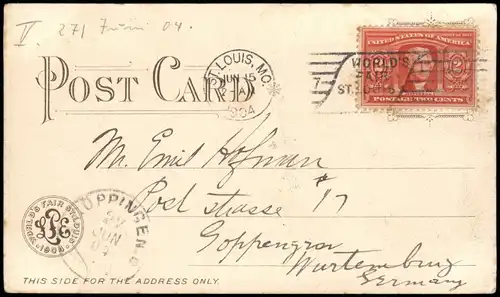 V. 27/ Juni 04.
POST CARD
ST. LOUIS, MO.
JUN 15
1904
WORLD'S
FAIR
ST. LOUIS
7
UNITED STATES OF AMERICA
2 2
POSTAGE TWO CENTS
Mr. Emil Hofman
Post strasse #17
Goppengen
Wurtemburg
Germany
GÖPPINGEN
27
JUN
04
WORLD'S FAIR ST. LOUIS
THIS SIDE FOR THE ADDRESS ONLY.